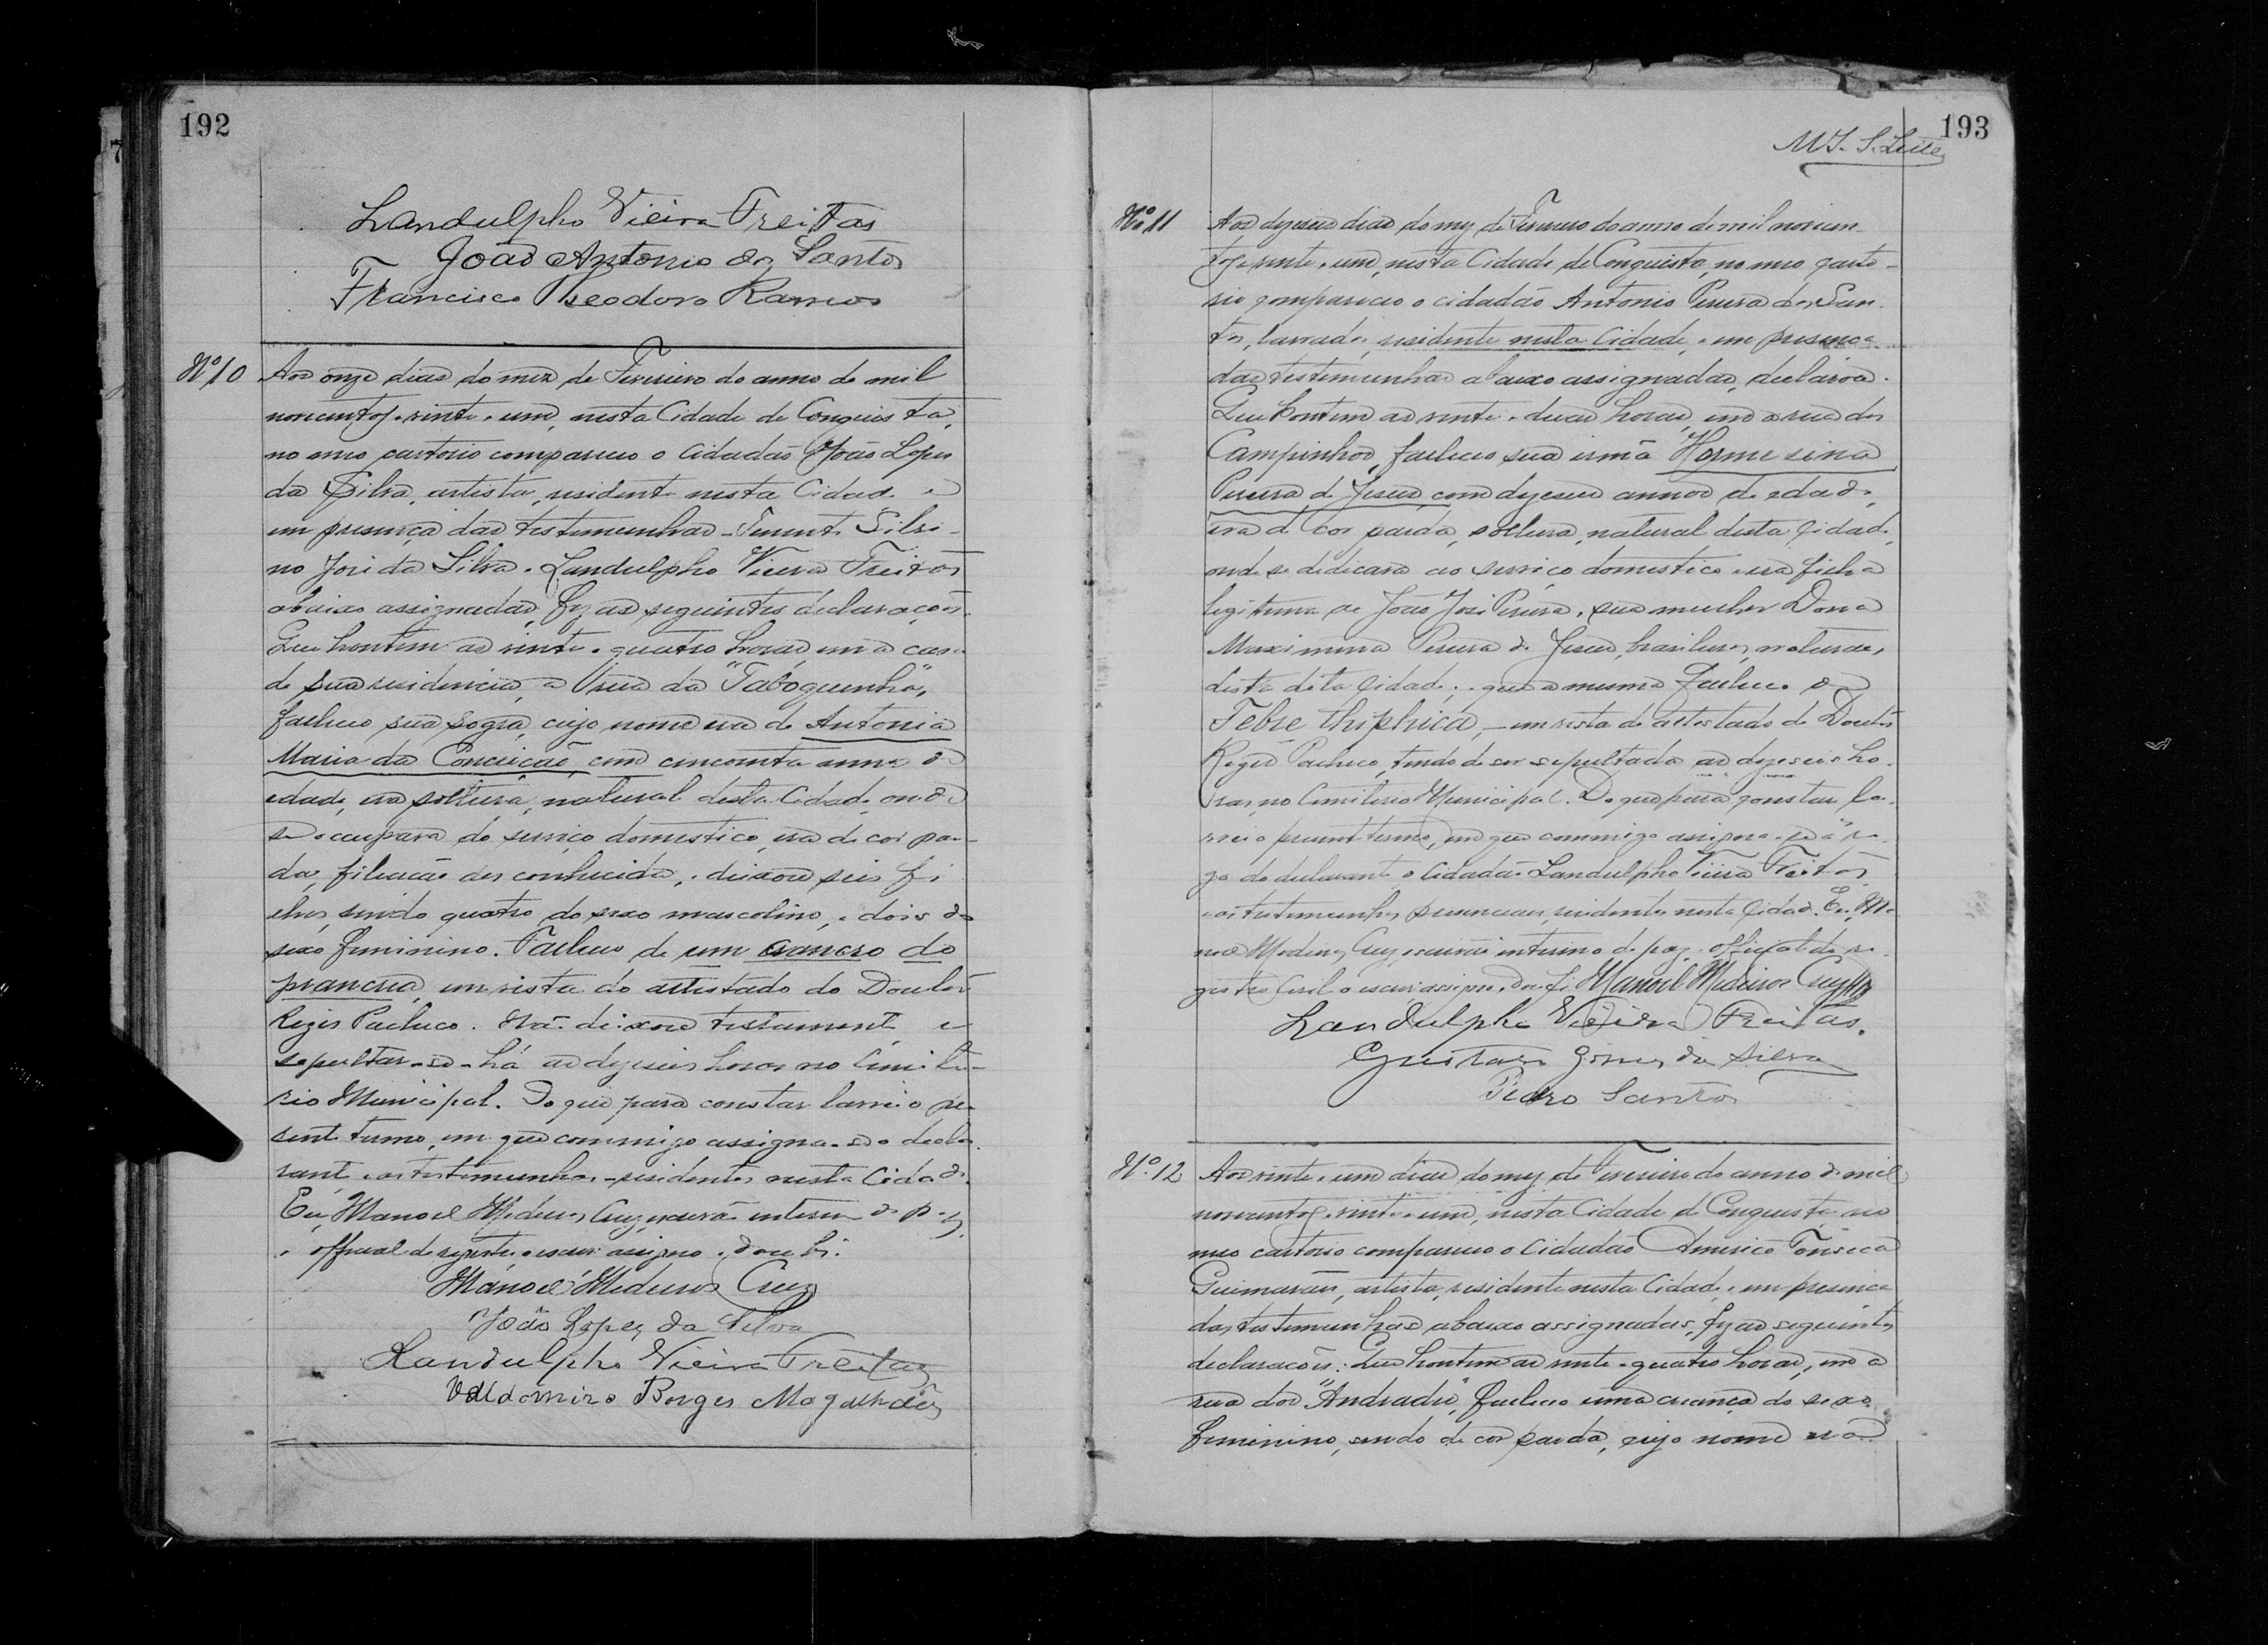 192
Landulpho Vieira Freitas
João Antonio dos Santos
Francisco Theodoro Ramos
Nº10 Aos onze dias do mez de Fevereiro do anno de mil
novecentos e vinte e um, nesta Cidade de Conquista,
no meu cartorio compareceu o Cidadão João Lopes
da Silva, artista, residente nesta Cidade e
em presença das testemunhas - Tenente Silvi-
no José da Silva e Landulpho Vieira Freitas
abaixo assignadas, fez as seguintes declarações.
Que hontem as vinte e quatro horas, em a casa
de sua residencia, a rua da "Taboquinha",
falleceu sua sogra, cujo nome era de Antonia
Maria da Conceição, com cincoenta annos de
edade, era solteira, natural desta Cidade, onde
se occupava do serviço domestico, era de cor par-
da, filiação desconhecida, e deixou seis fi
lhos, sendo quatro do sexo mascolino, e dois do
sexo feminino. Falleceu de um cancro do
prancria, em vista do attestado do Doutor
Regis Pacheco. Não deixou testamento e
sepultar-se-há as dezeseis horas no Cemite-
rio Municipal. Do que para constar lavrei o pre
sente termo, em que commigo assigna-se o decla
rante e as testemunhas - residentes nesta Cidade.
Eu, Manoel Medeiros Cruz, escrivão interino de paz
e official de registro o escrevi assigno e dou fé.
Manoel Medeiros Cruz
João Lopes da Silva
Landulpho Vieira Freitas
Valdomiro Borges Magalhães
193
M J. S. Leite
Nº 11 Aos dezeseis dias do mez de Fevereiro do anno de mil novecen
tos e vinte e um, nesta Cidade de Conquista, no meu carto-
rio compareceu o cidadão Antonio Pereira dos San-
tos, lavrador, residente nesta Cidade, e em presença
das testemunhas abaixo assignadas, declarou.
Que hontem as vinte e duas horas, em a rua dos
Campinhos, falleceu sua irmã Hormesina
Pereira de Jesus, com dezeseis annos de edade,
era de cor parda, solteira, natural desta Cidade,
onde se dedicava ao serviço domestico e era filha
legitima de João José Pereira e sua mulher Dona
Maximina Pereira de Jesus, brasileiros, naturaes
desta Cidade; e que a mesma falleceu de
Febre thiphica, - em vista do attestado do Doutor
Regis Pacheco, tendo de ser sepultada as dezeseis ho-
ras, no Cemiterio Municipal. Do que para constar la-
vrei o presente termo, em que commigo assigna-se a ro-
go do declarante o Cidadão Landulpho Vieira Freitas
e as testemunhas presenciaes, residentes nesta Cidade. Eu, Ma
noel Medeiros Cruz, escrivão interino de paz e official do re
gistro Civil o escrevi assigno e dou fé Manoel Medeiros Cruz
Landulpho Vieira Freitas.
Gustavo Gomes da Silva
Pedro Santos
Nº 12 Aos vinte e um dias do mez de Fevereiro do anno de mil
novecentos e vinte e um, nesta Cidade de Conquista, no
meu cartorio compareceu o Cidadão Americo Fonseca
Guimarães, artista, residente nesta Cidade, e em presença
das testemunhas abaixo assignadas, fez as seguintes
declarações: Que hontem as vinte e quatro horas, em a
rua dos "Andrades", falleceu uma creança do sexo
feminino, sendo de cor parda, cujo nome era